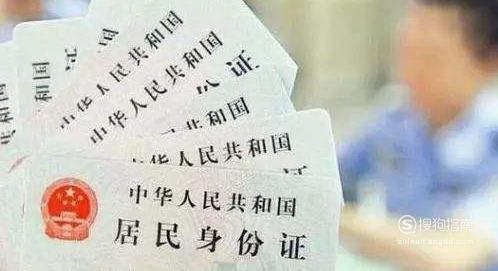 中华人民共和国
中华人民共和国
份证
中华人民共和国
份证
中华人民共和国
份证
中华人民共和国
居民身份证
搜狗指南
zhinan.sogou.com